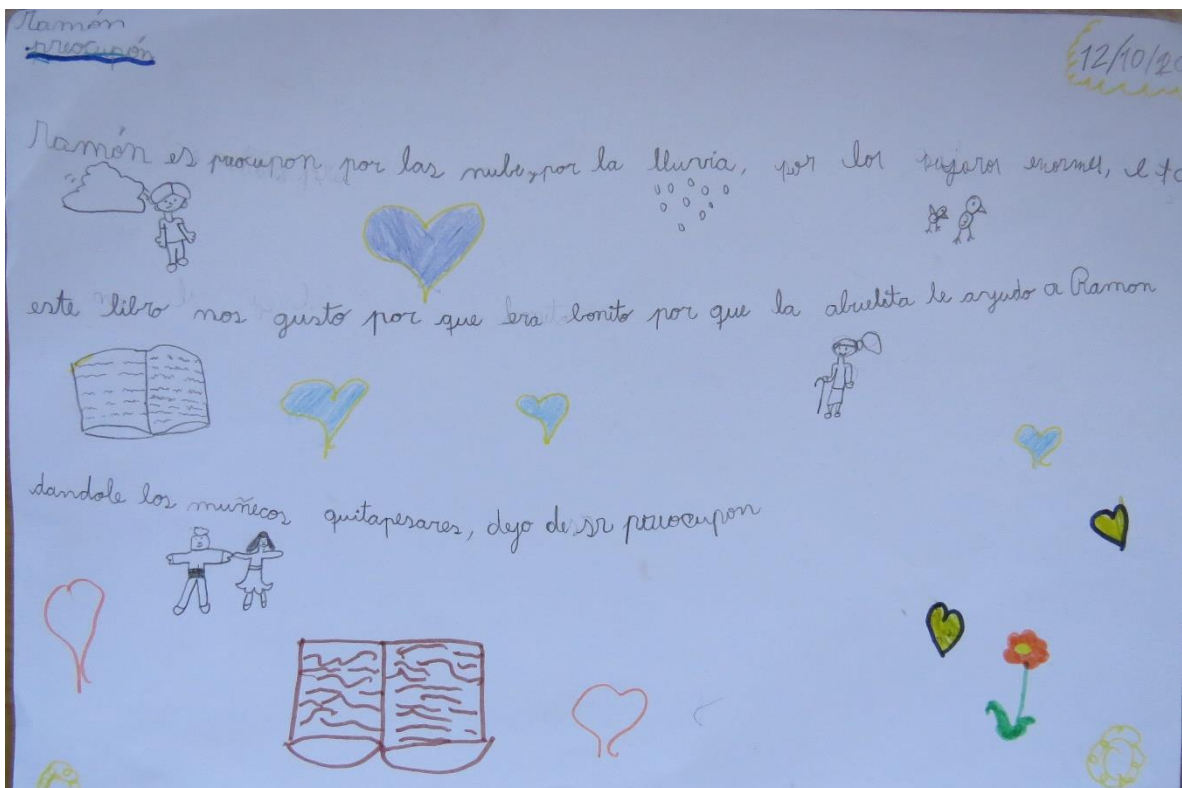 Ramón
preocupón
12/10/20
Ramón es preocupon por las nube, por la lluvia, por los pajaros enormes, e
este libro nos gusto por que era bonito por que la abuelita le ayudo a Ramon
dandole los muñecos quitapesares, dejo de ser preocupon